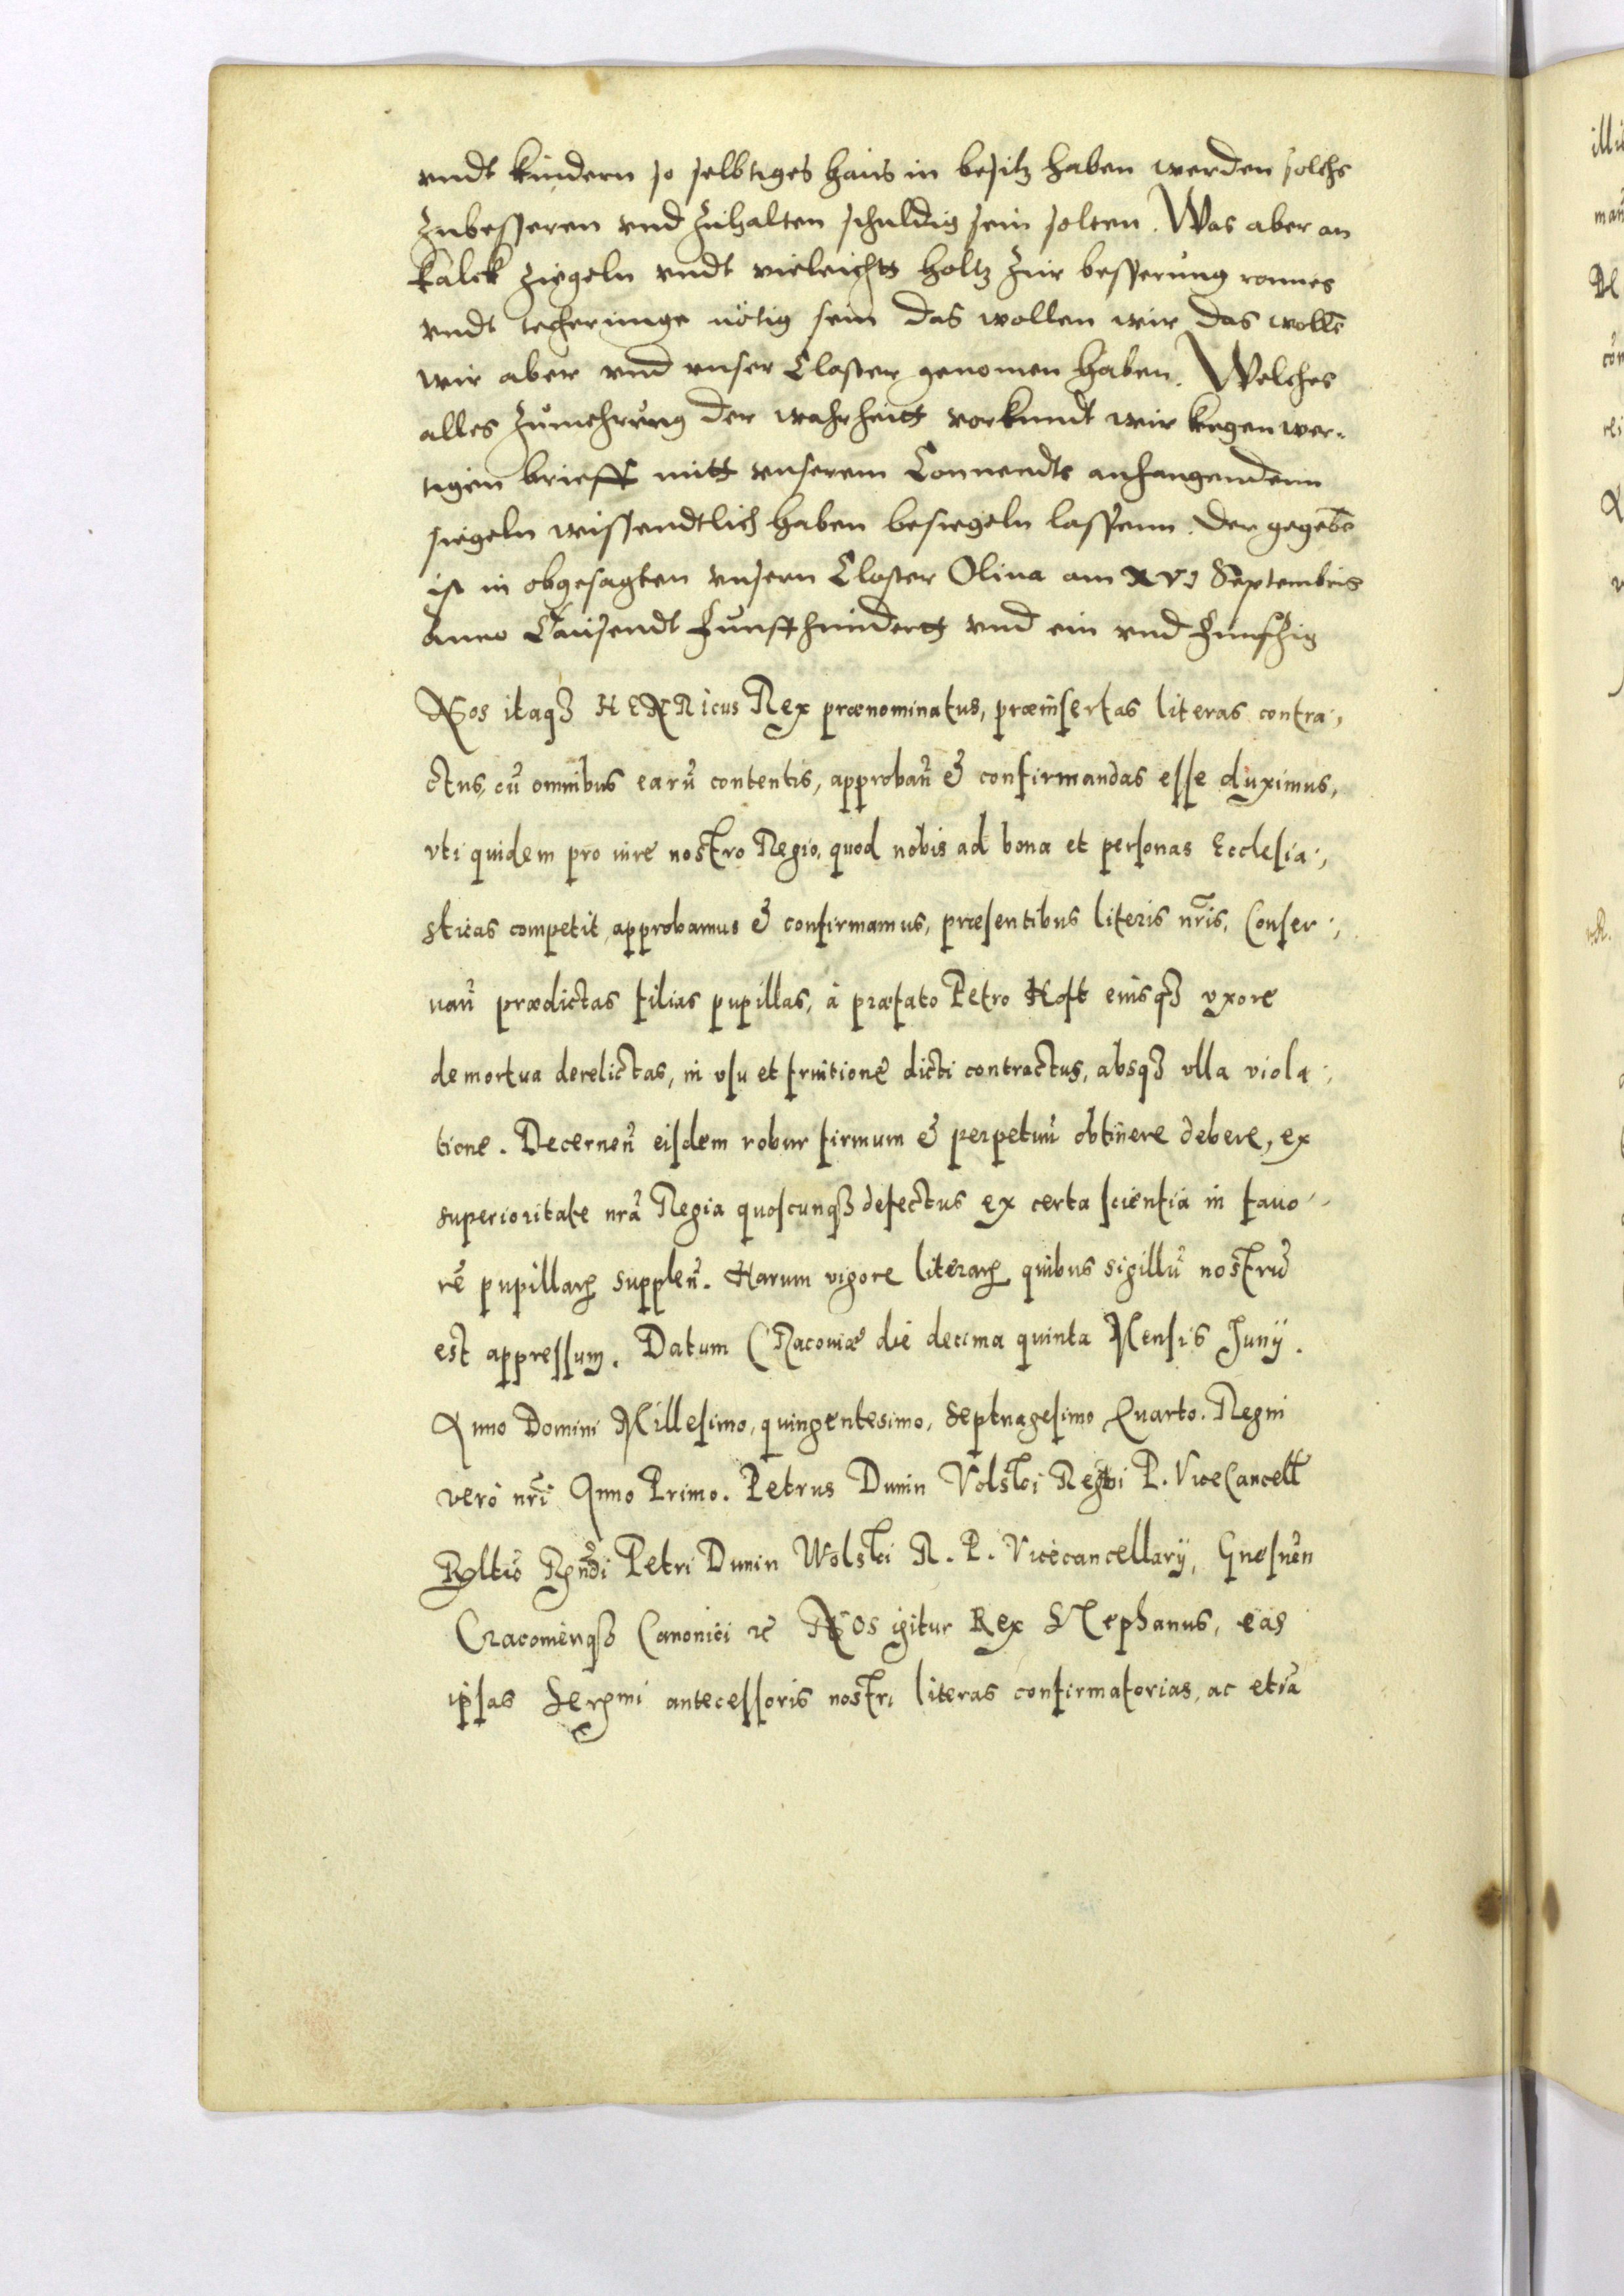 vndt kindern so selbtiges haus in besitz haben werden solchs
zubesseren vnd zuhalten schuldig sein solten. Was aber an
kalck ziegeln vndt vieleichtt holtz zur besserung
vndt nötig sein das wollen wir das wollē
wir aber vnd vnser Closter genomen haben. Welches
alles zumehrung der wahrheitt vorkundt wir kegenwer-
tigen brieff mitt vnserem Conuendts anhangendenn
siegeln wissendtlich haben besiegeln lassenn. Der gegebē
ist in obgesagten vnsern Closter Oliua am XVI Septembris
Anno Tausendt Funffhundertt vnd ein vnd Funfzig
Nos itaqꝫ HENRicus Rex prænominatus, præinsertas literas contra-
ctus, cū omnibus earū contentis, approbañ & confirmandas esse duximus,
vti quidem pro iure nostro Regio, quod nobis ad bona et personas Ecclesia-
sticas competit, approbamus & confirmamus, præsentibus literis nr̄is, Conser-
uañ prædictas filias pupillas, à præfato Petro Hoft eiusqꝫ vxore
demortua derelictas, in vsu et fruitione dicti contractus, absqꝫ vlla viola-
tione. Decerneñ eisdem robur firmum & perpetuū obtinere debere, ex
superioritate nrā Regia quoscunqꝫ defectus ex certa scientia in fauo-
rē pupillaꝝ suppleñ. Harum vigore literaꝝ quibus sigillū nostrū
est appressum. Datum CRacouiæ die decima quinta Mensis Junÿ.
Anno Domini Millesimo, quingentesimo, Septuagesimo Quarto. Regni
verò nr̄i Anno Primo. Petrus Dunin Volski Regni P. ViceCancell
Rltio Rndi Petri Dunin Wolski R. P. Vicecancellarÿ, Gnesneñ
Cracouieñqꝫ Canonici ꝛc NOS igitur Rex STephanus, eas
ipsas Serꝫmi antecessoris nostri literas confirmatorias, ac etiā